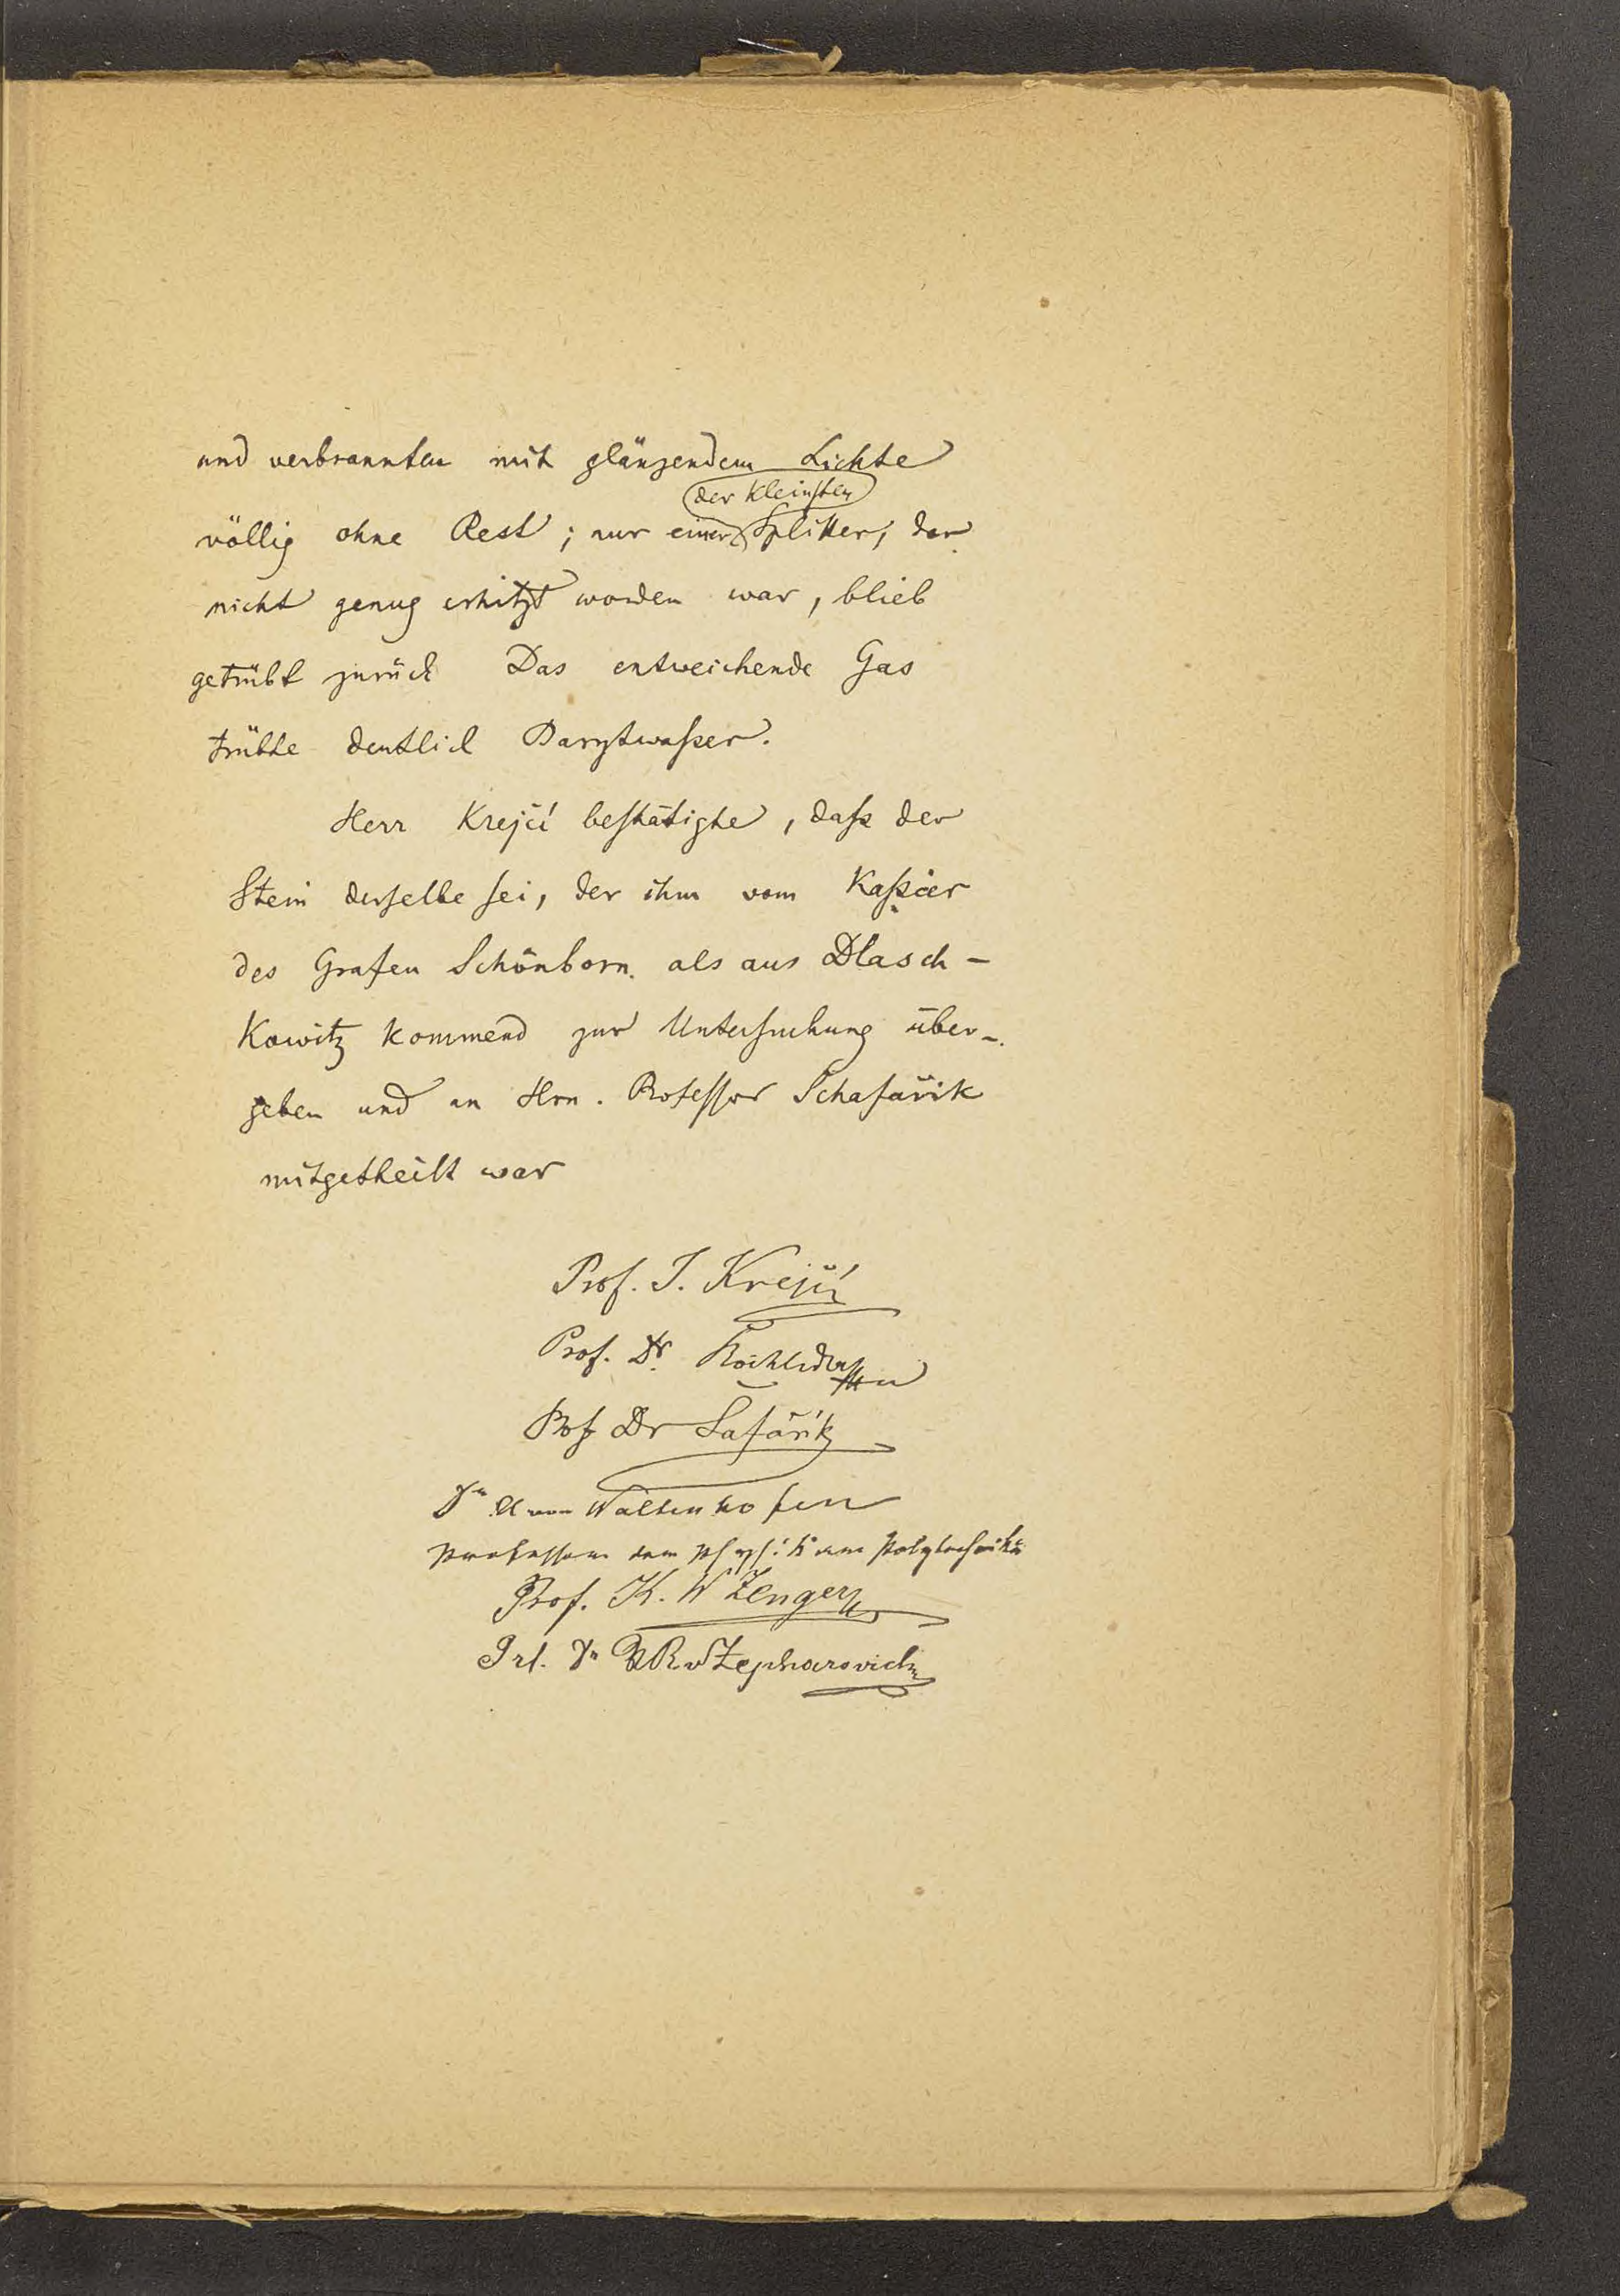 und verbrannten mit glänzendem Lichte
der kleinsten
völlig ohne Rest; nur einer Splitter, der
nicht genug erhitzt worden war, blieb
getrübt zurück Das entweichende Gas
trübte deutlich Barytwaſser.
Herr Krejčí beſtätigte, daſs der
Stein derſelbe ſei, der ihm vom Kaſsier
des Grafen Schönborn als aus Dlasch-
kowitz kommend zur Unterſuchung über-
geben und an Hrn. Profeſsor Schafařik
mitgetheilt war
Prof. J. Krejčí
Prof. Dr. Rochleder
Prof Dr Šafařík
Dr A von Waltenhofen
Professor der Physik am Polytechnikum
Prof. K. W Zenger
Prf. Dr V R v Zepharovich